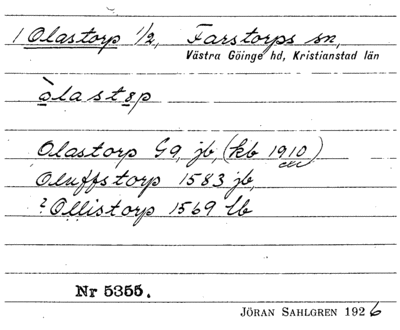 1 Olastorp 1/2, Farstorps sn,
Västra Göinge hd, Kristianstad län
òlastəp
Olastorp G9, jb, (kb 1910)
Oluffstorp 1583 jb,
? Ollistorp 1569 lb
Nr 5355.
JÖRAN SAHLGREN 1926